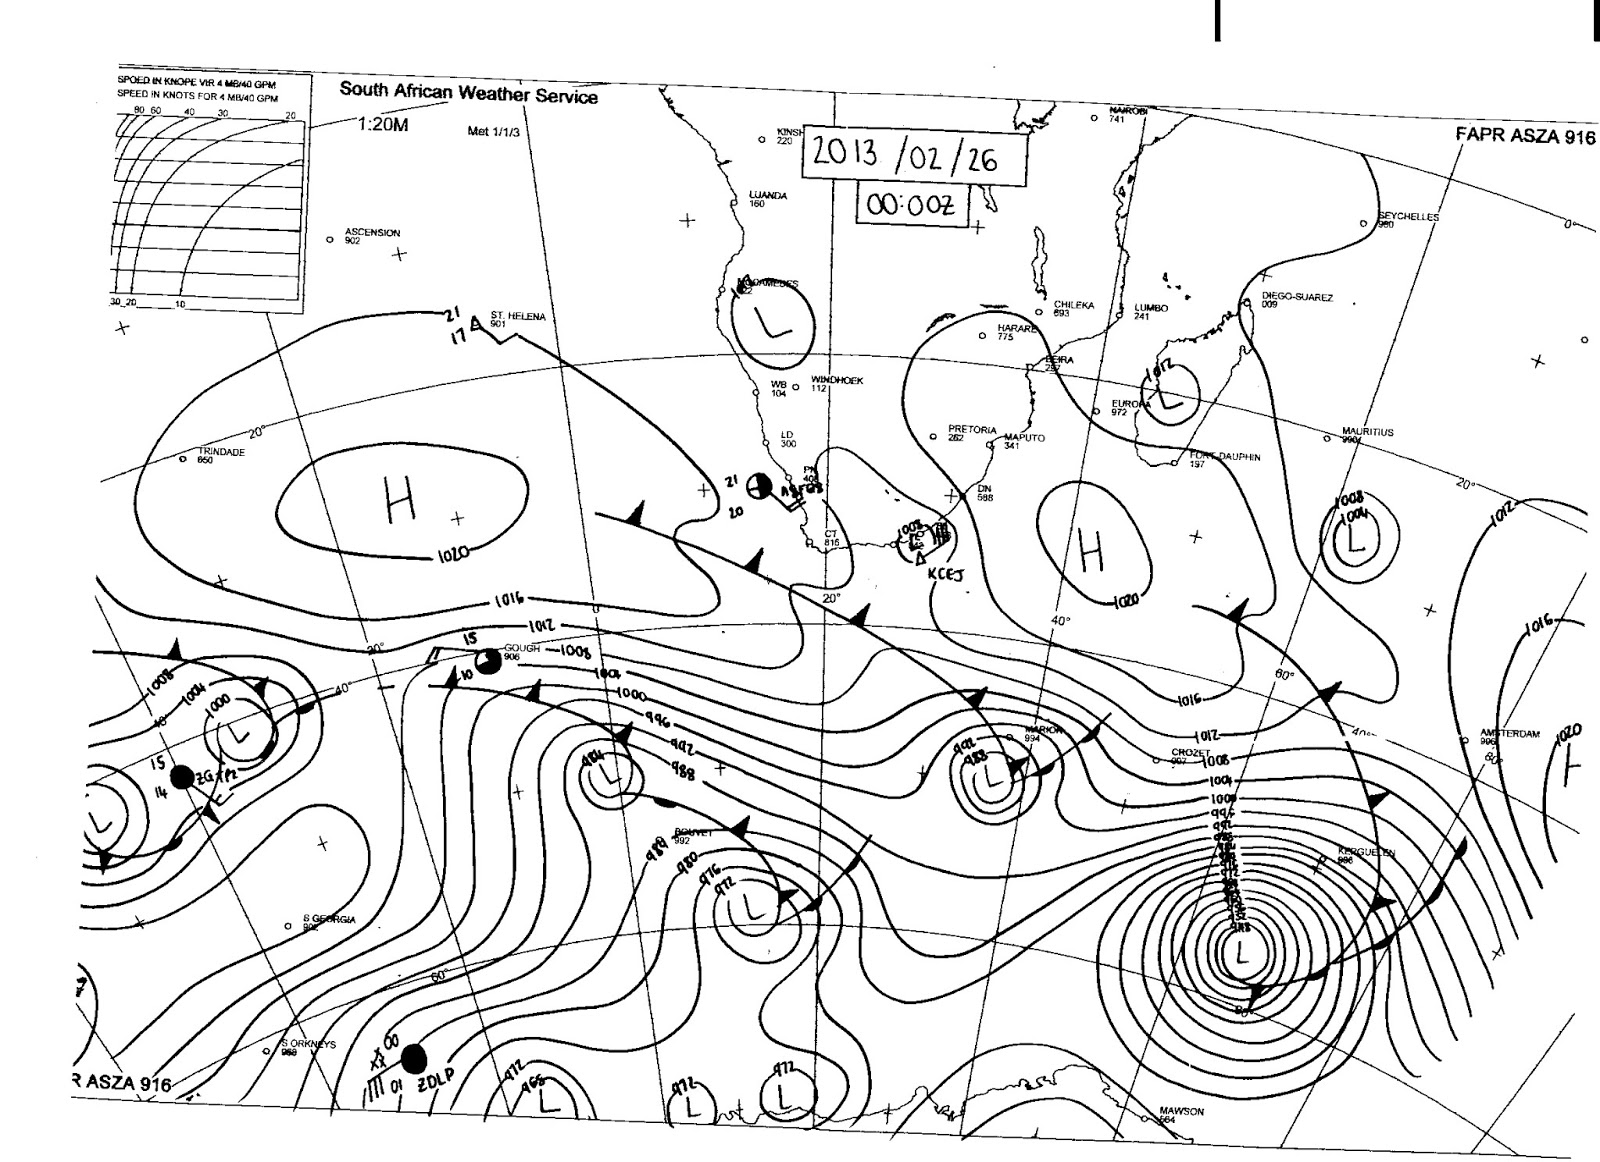 SPOED IN KNOPE VIR 4 MB/40 GPM
SPEED IN KNOTS FOR 4 MB/40 GPM
80 60 40 30 20
30 20 10
South African Weather Service
1:20M
Met 1/1/3
2013/02/26
00:00Z
FAPR ASZA 916
NAIROBI
741
220
LUANDA
160
ASCENSION
902
SEYCHELLES
980
0°
DIEGO-SUAREZ
009
CHILEKA
693
LUMBO
241
HARARE
775
BEIRA
297
21
17
ST. HELENA
901
L
WB
104
WINDHOEK
112
EUROPA
972
1012
L
20°
TRINDADE
650
LD
300
PRETORIA
262
MAPUTO
341
FORT-DAUPHIN
197
MAURITIUS
990
20°
H
1020
21
20
DN
588
CT
816
1008
KCEJ
H
1020
1008
1004
L
1012
1016
1020
1016
1012
0
20°
40°
60°
15
10
GOUGH
906
1008
1004
1000
996
992
988
30°
40°
1008
1004
1000
L
984
L
15
14
L
BOUVET
992
984
980
976
972
L
992
988
L
MARION
994
CROZET
997
1016
1012
1008
1004
1000
996
992
KERGUELEN
998
L
40°
AMSTERDAM
996
S GEORGIA
902
60°
S ORKNEYS
968
00
01
ZDLP
972
968
L
972
L
972
L
MAWSON
564
R ASZA 916